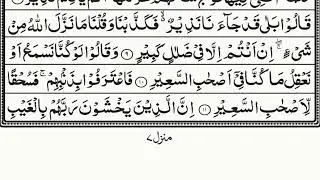 قَالُوۡا بَلٰى قَدۡ جَآءَنَا نَذِيۡرٌ ۙ فَكَذَّبۡنَا وَقُلۡنَا مَا نَزَّلَ اللّٰهُ مِنۡ
شَىۡءٍ ۖۚ اِنۡ اَنۡتُمۡ اِلَّا فِىۡ ضَلٰلٍ كَبِيۡرٍ ۹ وَقَالُوۡا لَوۡ كُنَّا نَسۡمَعُ اَوۡ
نَعۡقِلُ مَا كُنَّا فِىۡۤ اَصۡحٰبِ السَّعِيۡرِ ۱۰ فَاعۡتَرَفُوۡا بِذَنۡۢبِهِمۡ ۚ فَسُحۡقًا
لِّاَصۡحٰبِ السَّعِيۡرِ ۱۱ اِنَّ الَّذِيۡنَ يَخۡشَوۡنَ رَبَّهُمۡ بِالۡغَيۡبِ
منزل ۷